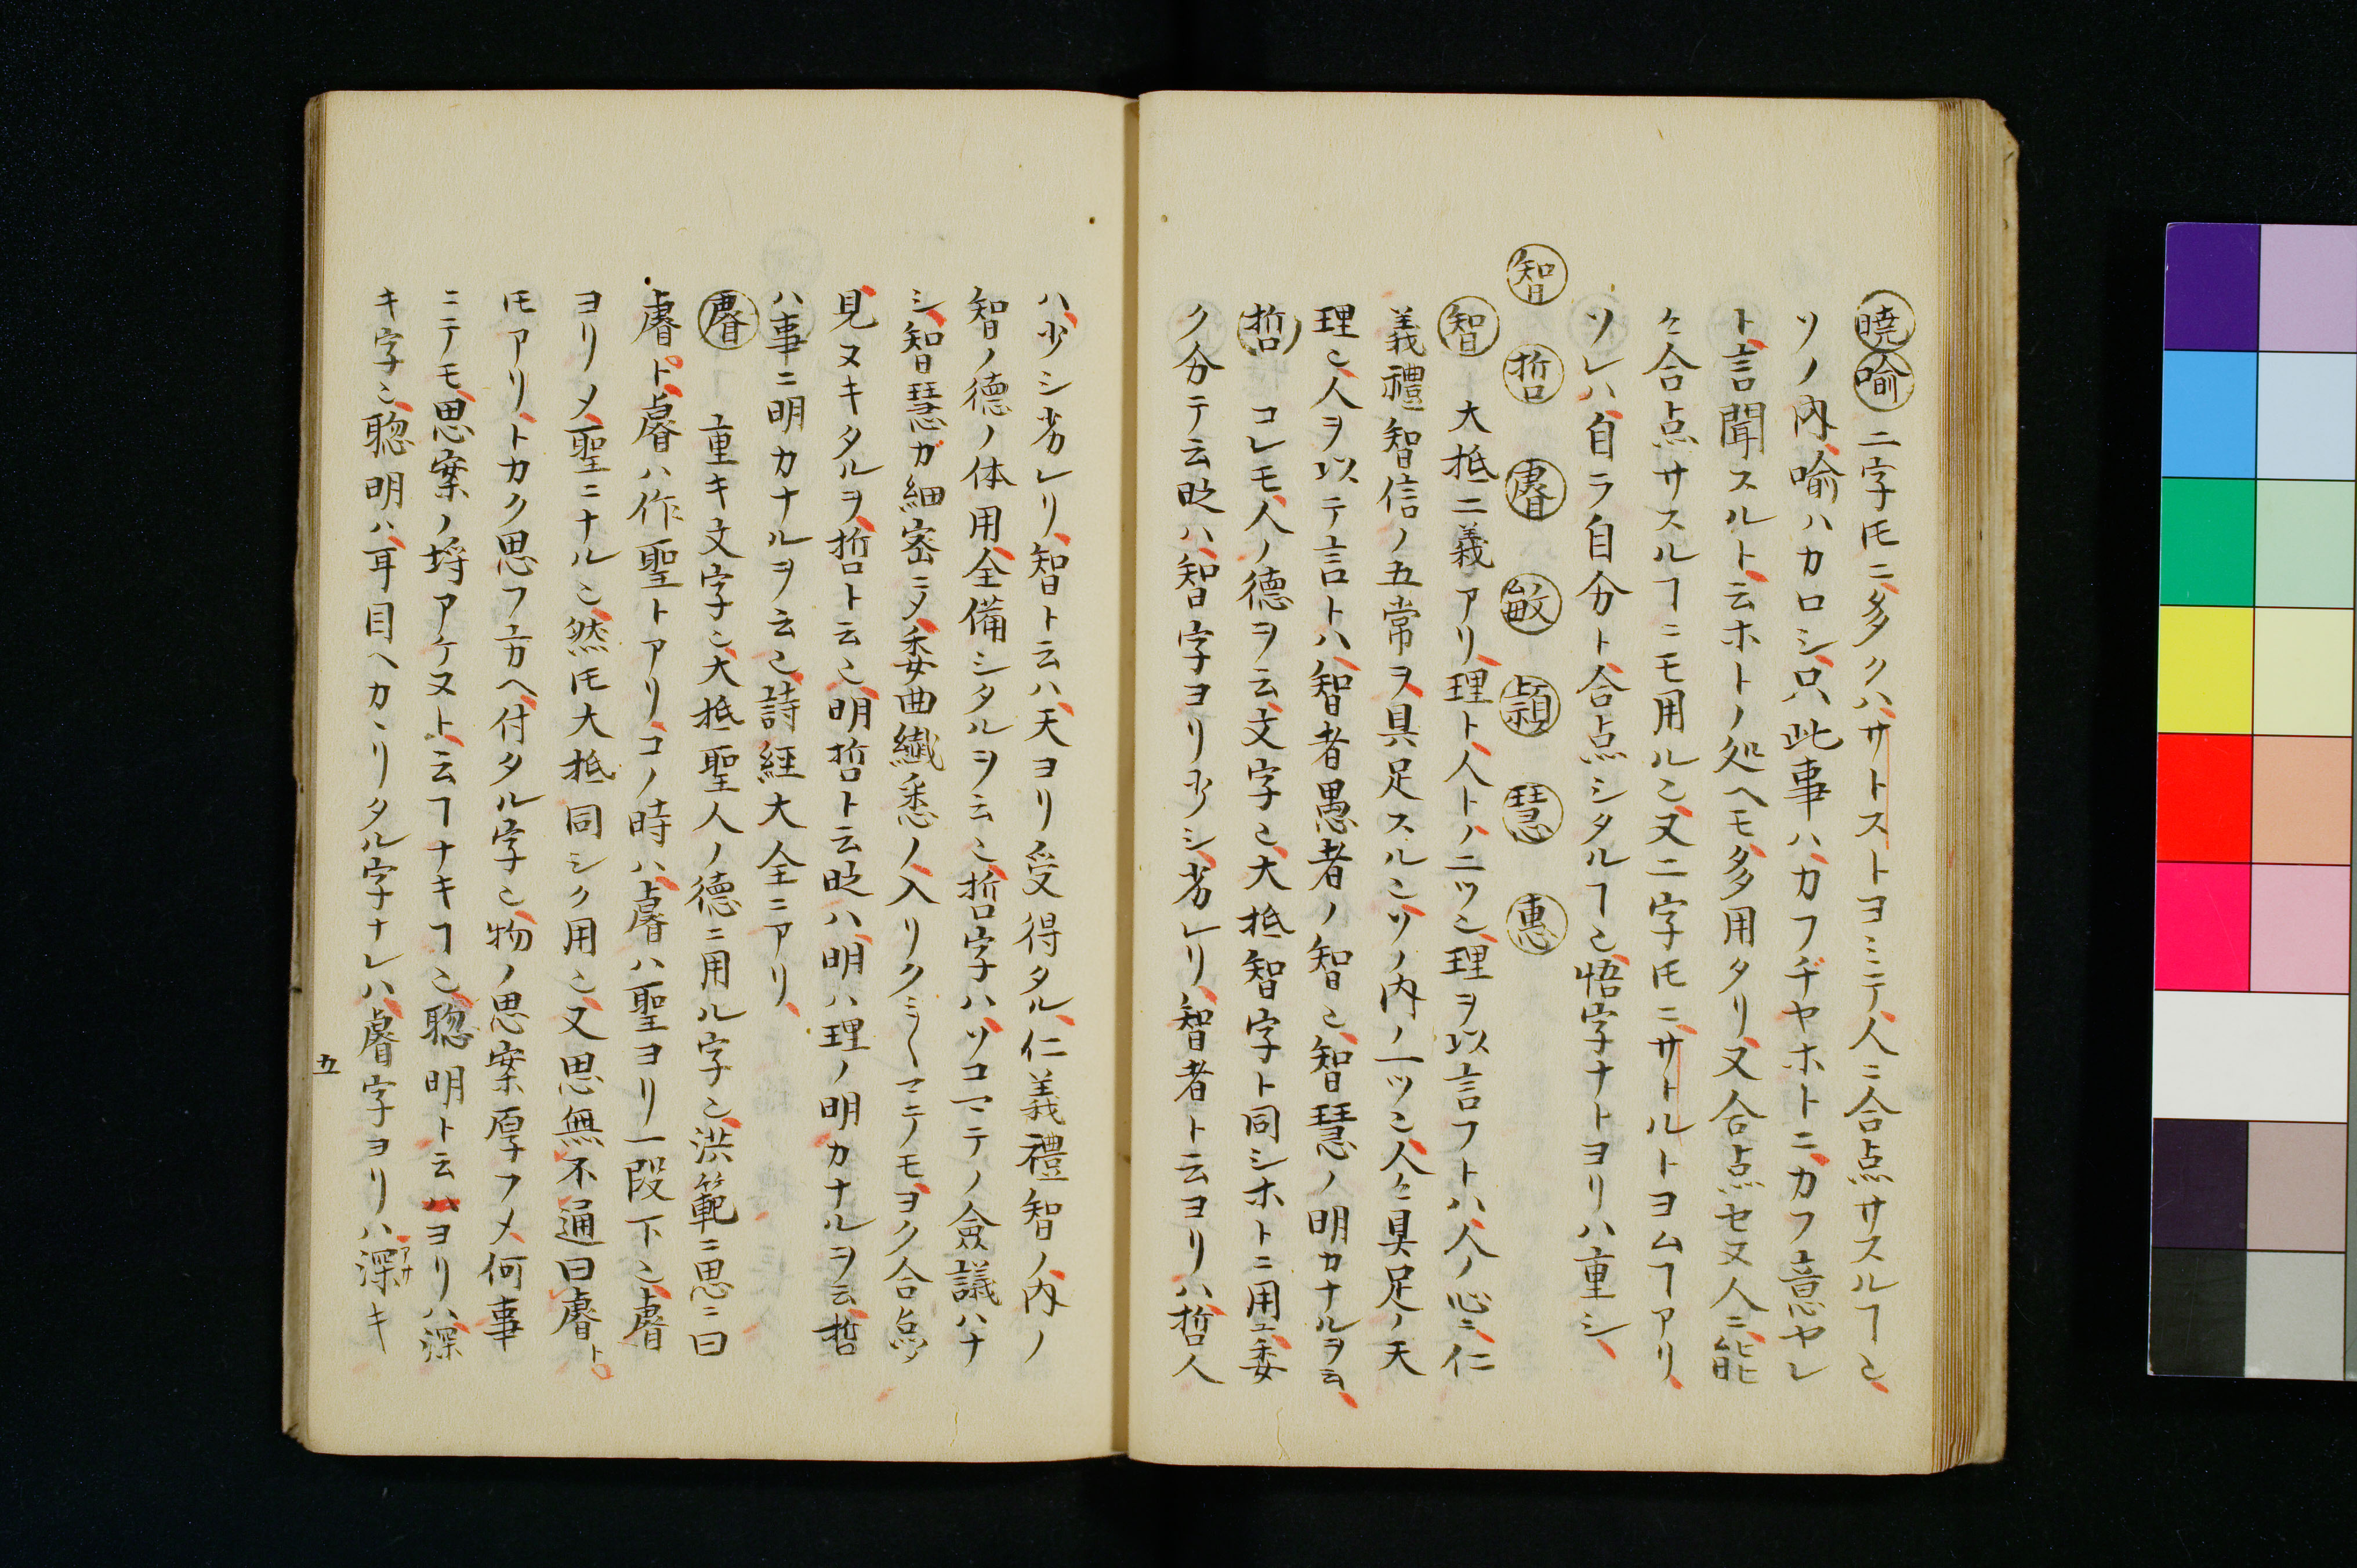 曉喩二字㐬ニ多クハサトストヨミテ人ニ合点サスルヿ𪜈
ソノ内喻ハカロシ只此事ハカフヂヤホトニカフ意ヤレ
ト言聞スルト云ホトノ処ヘモ多用タリ又合点セヌ人ニ能
々合点サスルヿニモ用ル也又二字㐬ニサトルトヨムヿアリ
ソレハ自ラ自分ト合点シタルヿ也悟字ナトヨリハ重シ
智 哲 睿 敏 穎 慧 惠
智 大抵二義アリ理ト人トノ二ツ也理ヲ以言フトハ人ノ心ニ仁
義禮智信ノ五常ヲ具足スル也ソノ内ノ一ツ也人々具足ノ天
理也人ヲ以テ言トハ智者愚者ノ智也智慧ノ明カナルヲ云
哲 コレモ人ノ德ヲ云文字也大抵智字ト同シホトニ用委
ク分テ云時ハ智字ヨリ少シ劣レリ智者ト云ヨリハ哲人
ハ少シ劣レリ智ト云ハ天ヨリ受得タル仁義禮智ノ内ノ
智ノ德ノ体用全備シタルヲ云也哲字ハソコマテノ僉議ハナ
シ智慧カ細密ニ〆委曲纎悉ノ入リクミ〱マテモヨク合点
見ヌキタルヲ哲ト云也明哲ト云時ハ明ハ理ノ明カナルヲ云哲
ハ事ニ明カナルヲ云也詩経大全ニアリ
睿 重キ文字也大抵聖人ノ德ニ用ル字也洪範ニ思ニ曰
睿ト睿ハ作聖トアリコノ時ハ睿ハ聖ヨリ一段下也睿
ヨリ〆聖ニナル也然㐬大抵同シク用也又思無不通曰睿ト
モアリトカク思フ方ヘ付タル字也物ノ思案厚フ〆何事
ニテモ思案ノ埒アケヌト云ヿナキヿ也聰明ト云ハヨリハ深
キ字也聰明ハ耳目ヘカヽリタル字ナレハ睿字ヨリハ深キ
五